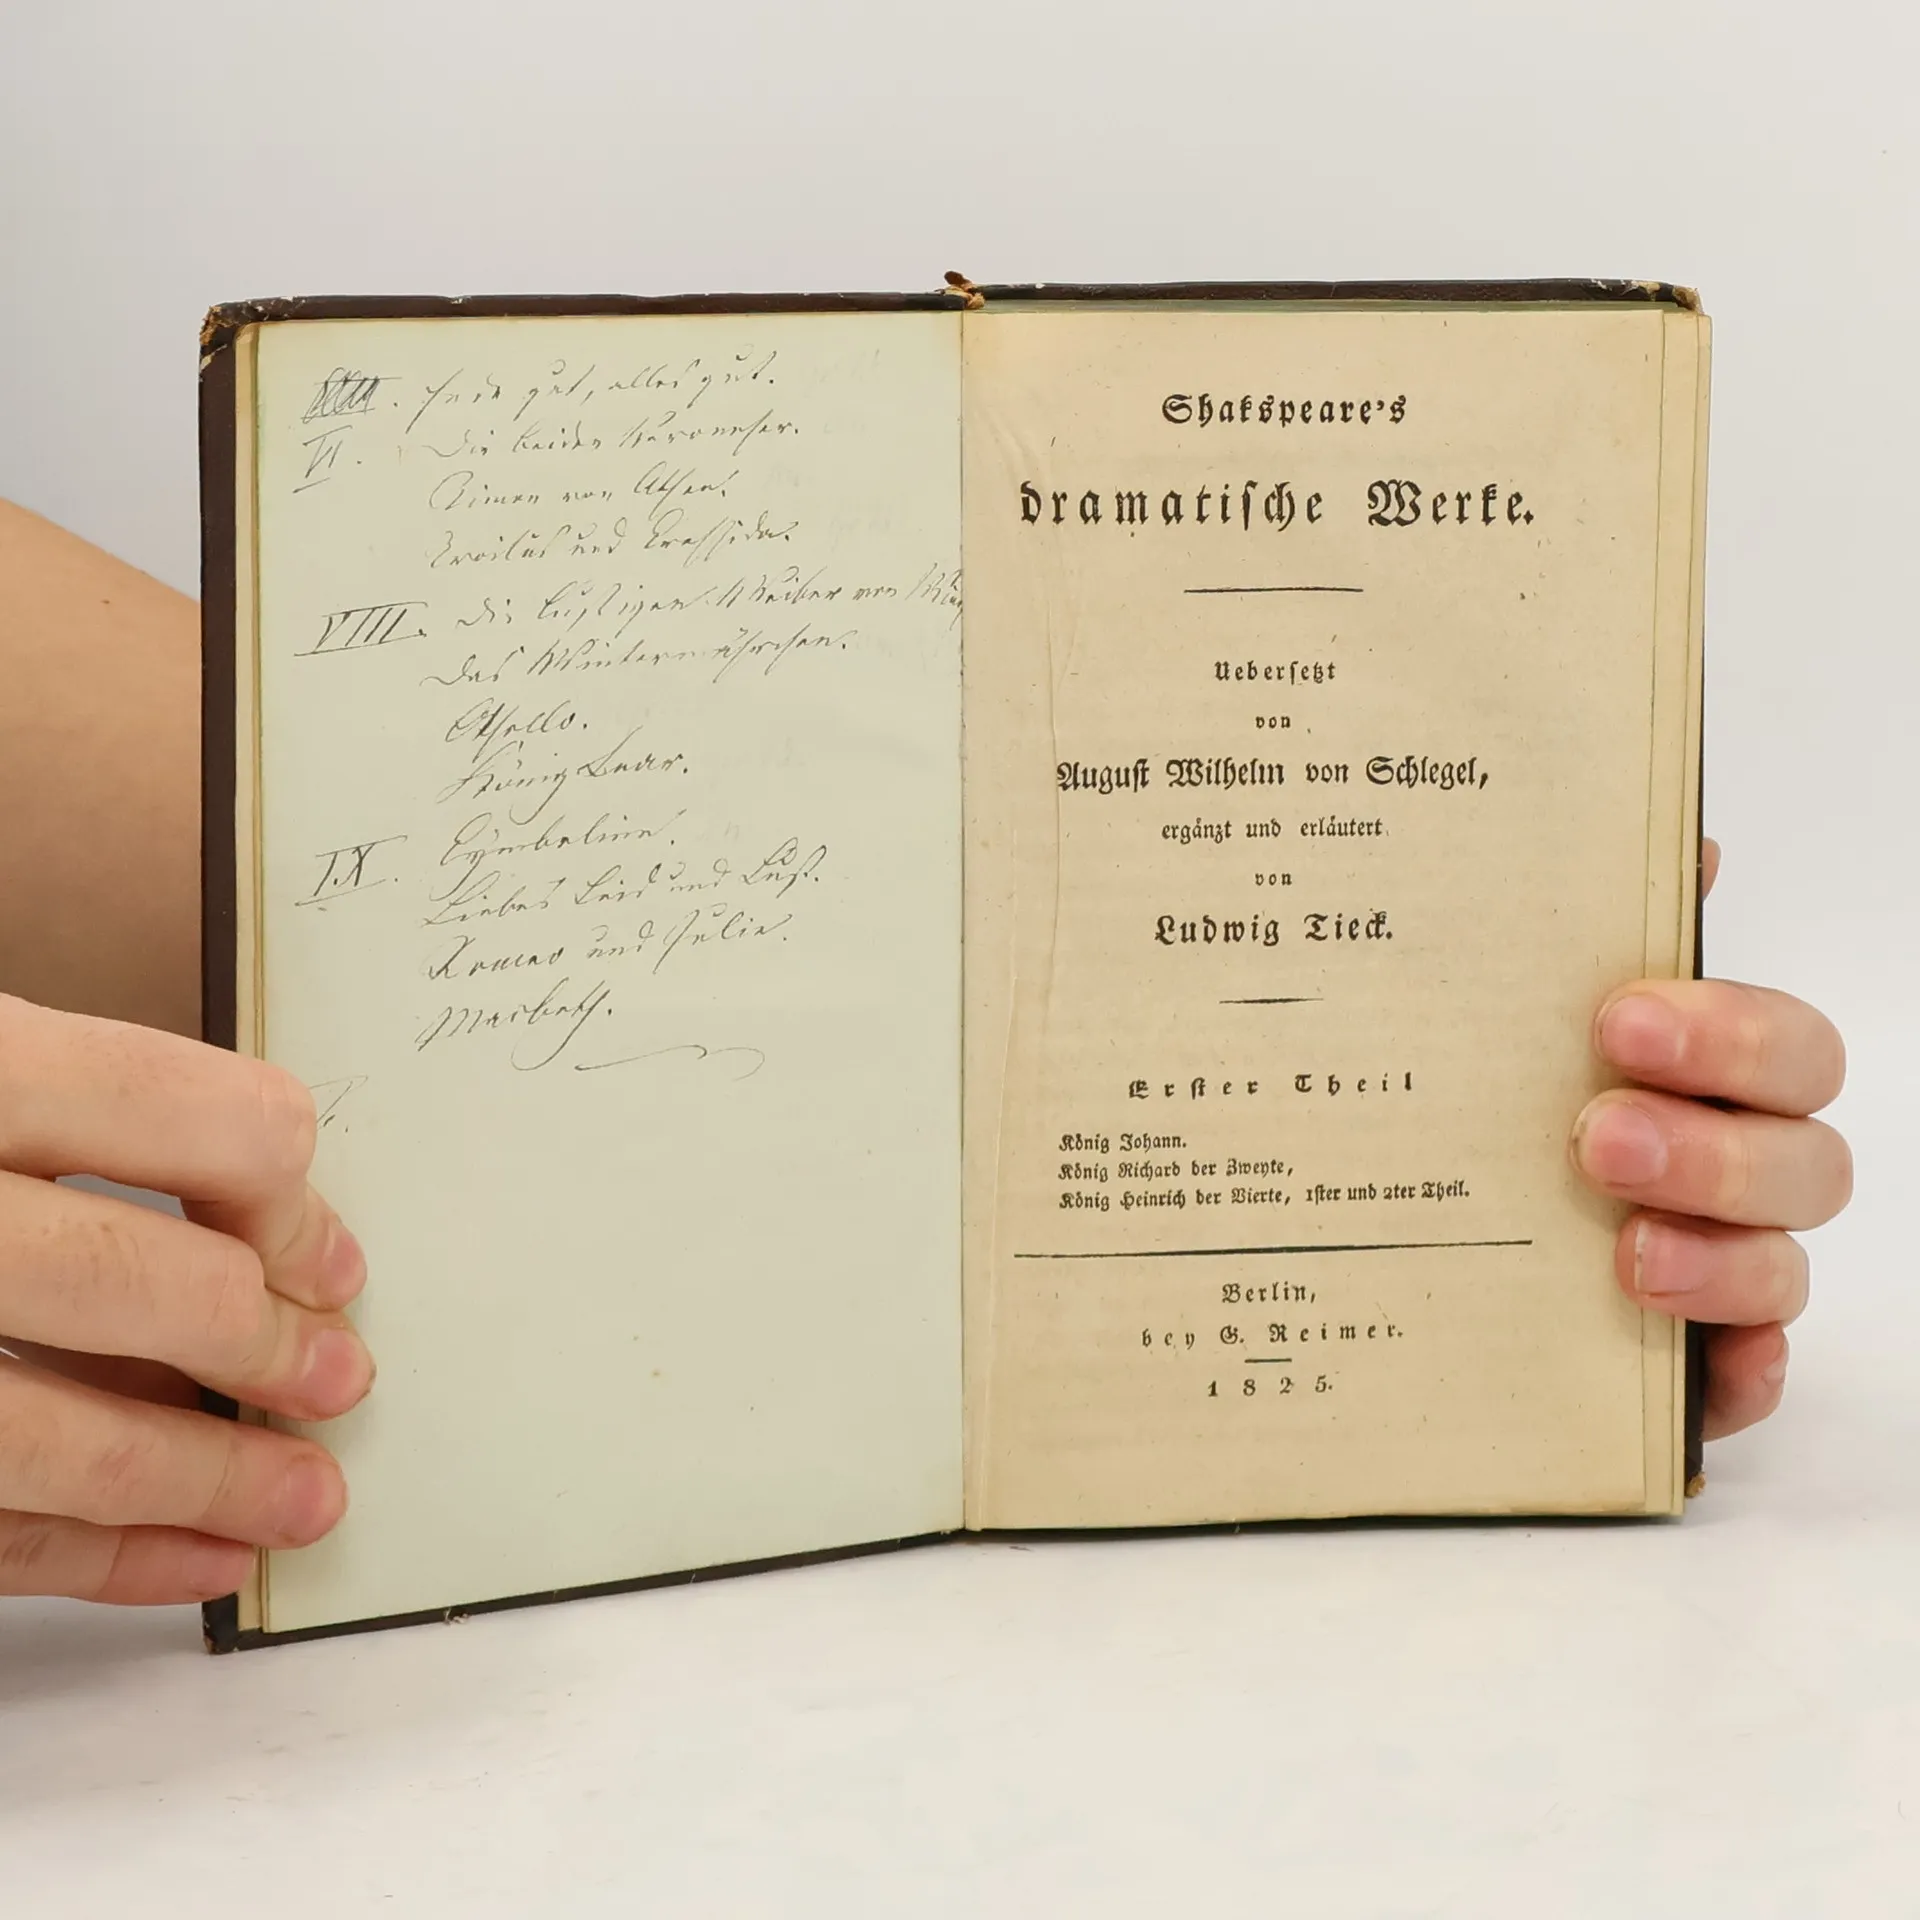 Ende gut, alles gut.
VI. Die beiden Veroneser.
Timon von Athen.
Troilus und Cressida.
VIII. Die lustigen Weiber von
Das Wintermährchen.
Othello.
König Lear.
IX. Cymbeline.
Liebes Leid und Lust.
Romeo und Julie.
Macbeth.
Shakspeare's
dramatische Werke.
Uebersetzt
von
August Wilhelm von Schlegel,
ergänzt und erläutert
von
Ludwig Tieck.
Erster Theil
König Johann.
König Richard der Zweyte,
König Heinrich der Vierte, 1ster und 2ter Theil.
Berlin,
bey G. Reimer.
1825.